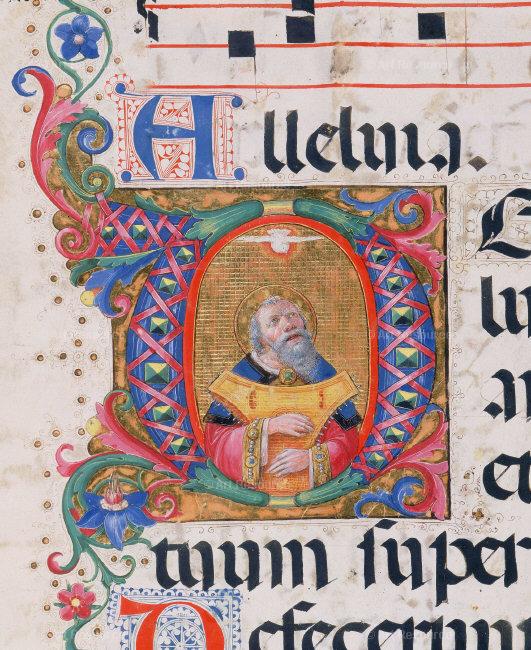 Alleluia.
DE
lu
an
et
tuum super
Defecerun